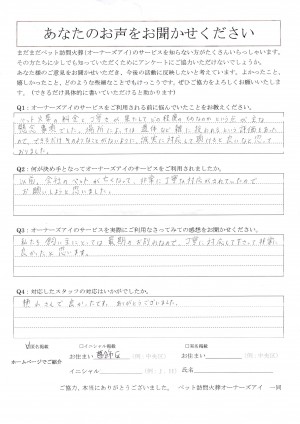 あなたのお声をお聞かせください
まだまだペット訪問火葬(オーナーズアイ)のサービスを知らない方がたくさんいらっしゃいます。
その方たちに少しでも知っていただくためにアンケートにご協力いただけないでしょうか。
あなた様のご意見をお聞かせいただき、今後の活動に反映したいと考えています。よかったこと、
感じたこと、どのような些細なことでもけっこうです。ぜひご協力をよろしくお願いいたします。
(できるだけ具体的に書いていただけると助かります)
Q1：オーナーズアイのサービスをご利用される前に悩んでいたことをお教えください。
ペット火葬の料金と丁寧さが果たしてどの程度のものなのかという点が
懸念事項でした。場所によっては遺体など雑に扱われるという評価もあった
ので、できるだけそのようなことがないように、誠実に対応して頂けたら良いなと思って
おりました。
Q2：何が決め手となってオーナーズアイのサービスをご利用されましたか。
以前、会社のペットが亡くなって、非常に丁寧な対応がされていたので
お願いしようと思いました。
Q3：オーナーズアイのサービスを実際にご利用なさってみての感想をお聞かせください。
私たち飼い主にとっては最期のお別れなので、丁寧に対応して下さって非常に
良かったと思います。
Q4：対応したスタッフの対応はいかがでしたか。
さんで良かったです。ありがとうございました。
実名掲載
イニシャル掲載
匿名掲載
ホームページでご紹介
お住まい
(例：中央区)
お住まい
(例：中央区)
イニシャル
氏名
ご協力、本当にありがとうございました。 ペット訪問火葬オーナーズアイ 一同